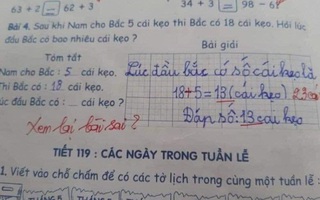 63 + 2 = 62 + 3
34 + 3 = 98 - 6
Bài 4. Sau khi Nam cho Bắc 5 cái kẹo thì Bắc có 18 cái kẹo. Hỏi lúc
đầu Bắc có bao nhiêu cái kẹo ?
Tóm tắt
Bài giải
Nam cho Bắc : 5 cái kẹo.
Lúc đầu bắc có số cái kẹo là
Thì Bắc có : 18 cái kẹo.
18+5=13 (cái kẹo) 23 cái
Lúc đầu Bắc có : ... cái kẹo ?
Đáp số: 13 cái kẹo
Xem lại bài sai ?
TIẾT 119 : CÁC NGÀY TRONG TUẦN LỄ
1. Viết vào chỗ chấm để có các tờ lịch trong cùng một tuần lễ :